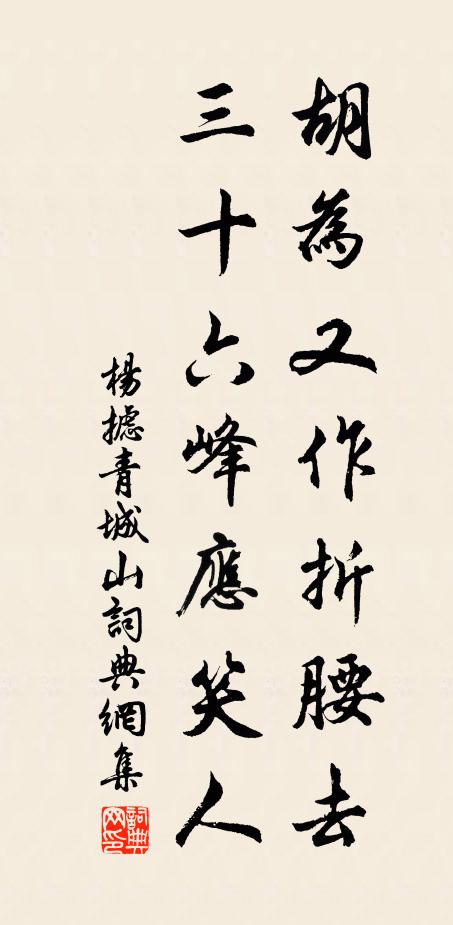 胡為又作折腰去
三十六峰應笑人
楊摅青城山詞典網集
詞典網印